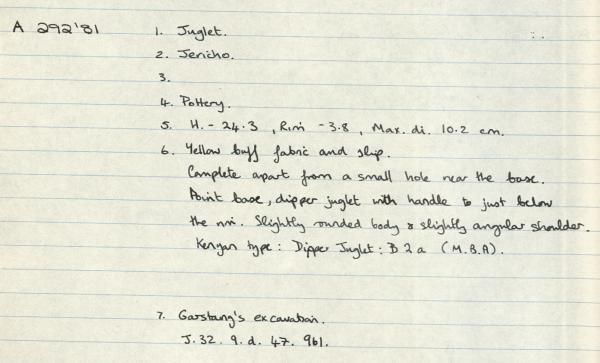 A 292'81 1. Juglet.
2. Jericho.
3.
4. Pottery.
5. H. - 24.3, Rim - 3.8, Max. di. 10.2 cm.
6. Yellow buff fabric and slip.
Complete apart from a small hole near the base.
Point base, dipper juglet with handle to just below
the rim. Slightly rounded body & slightly angular shoulder.
Kenyan type: Dipper Juglet: B 2 a (M.B.A).
7. Garstang's excavation.
J. 32. 9. d. 47. 961.